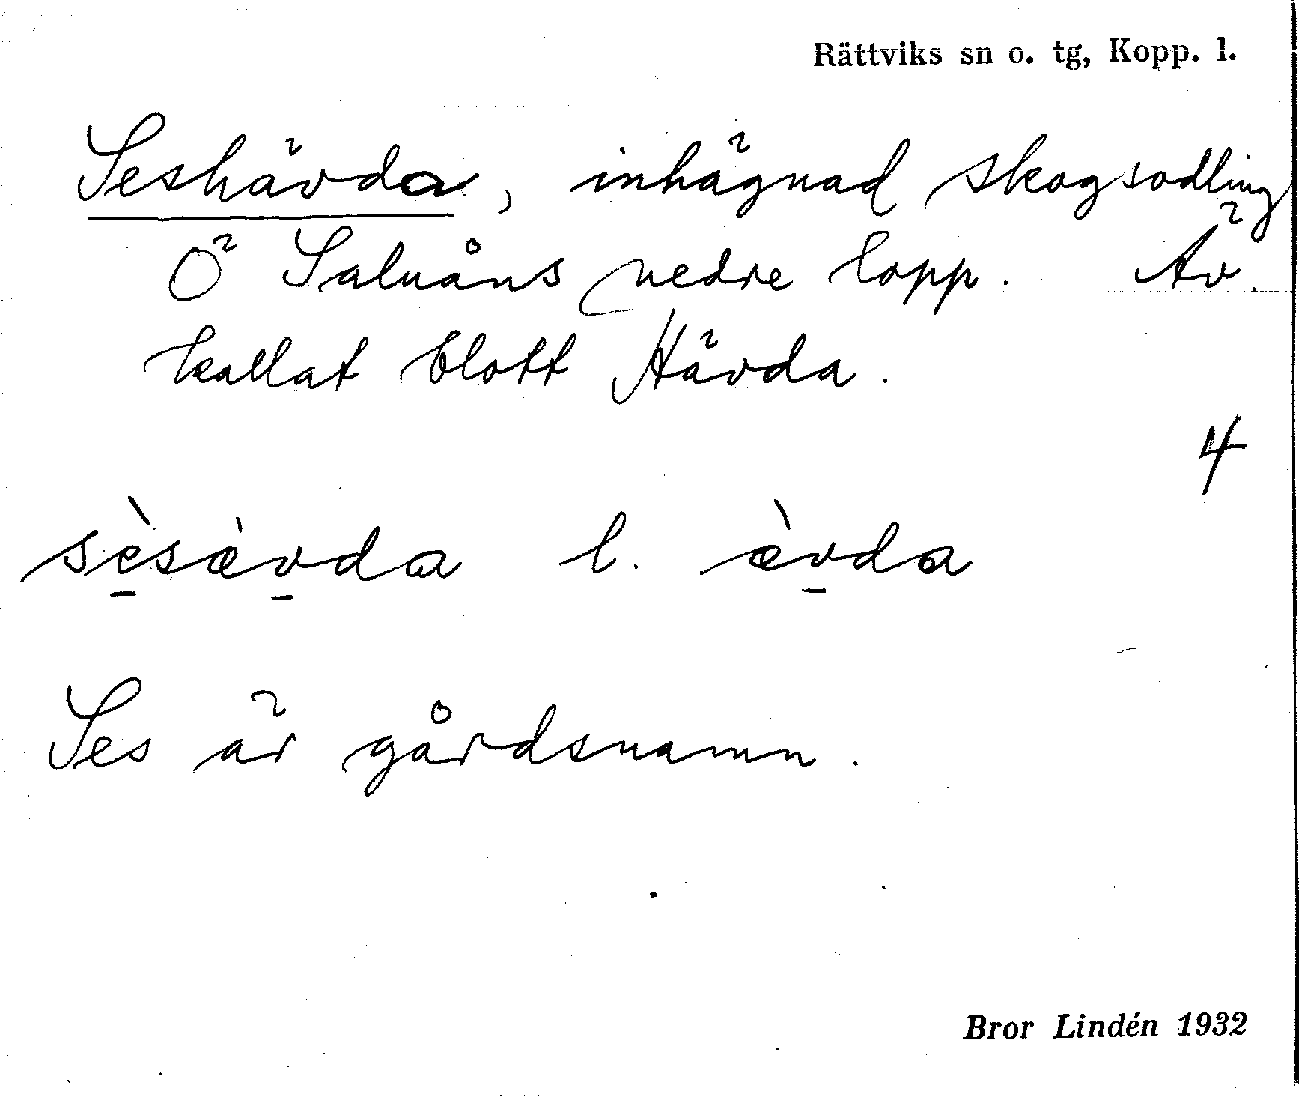 Rättviks sn o. tg, Kopp. l.
Seshävda, inhägnad skogsodling
Ö Saluåns nedre lopp. Äv.
kallat blott Hävda.
4
sèsæ̀vda l. æ̀vda
Ses är gårdsnamn.
Bror Lindén 1932